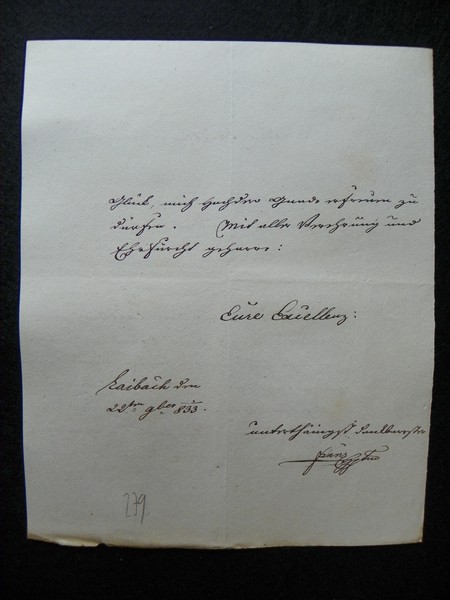 Glück, mich Hochdero Gnade erfreuen zu
dürfen. Mit aller Verehrung und
Ehrfurcht geharre:
Eure Excellenz:
Laibach den
22ten 9ber 833.
unterthänigst dankbarster
Franz
279